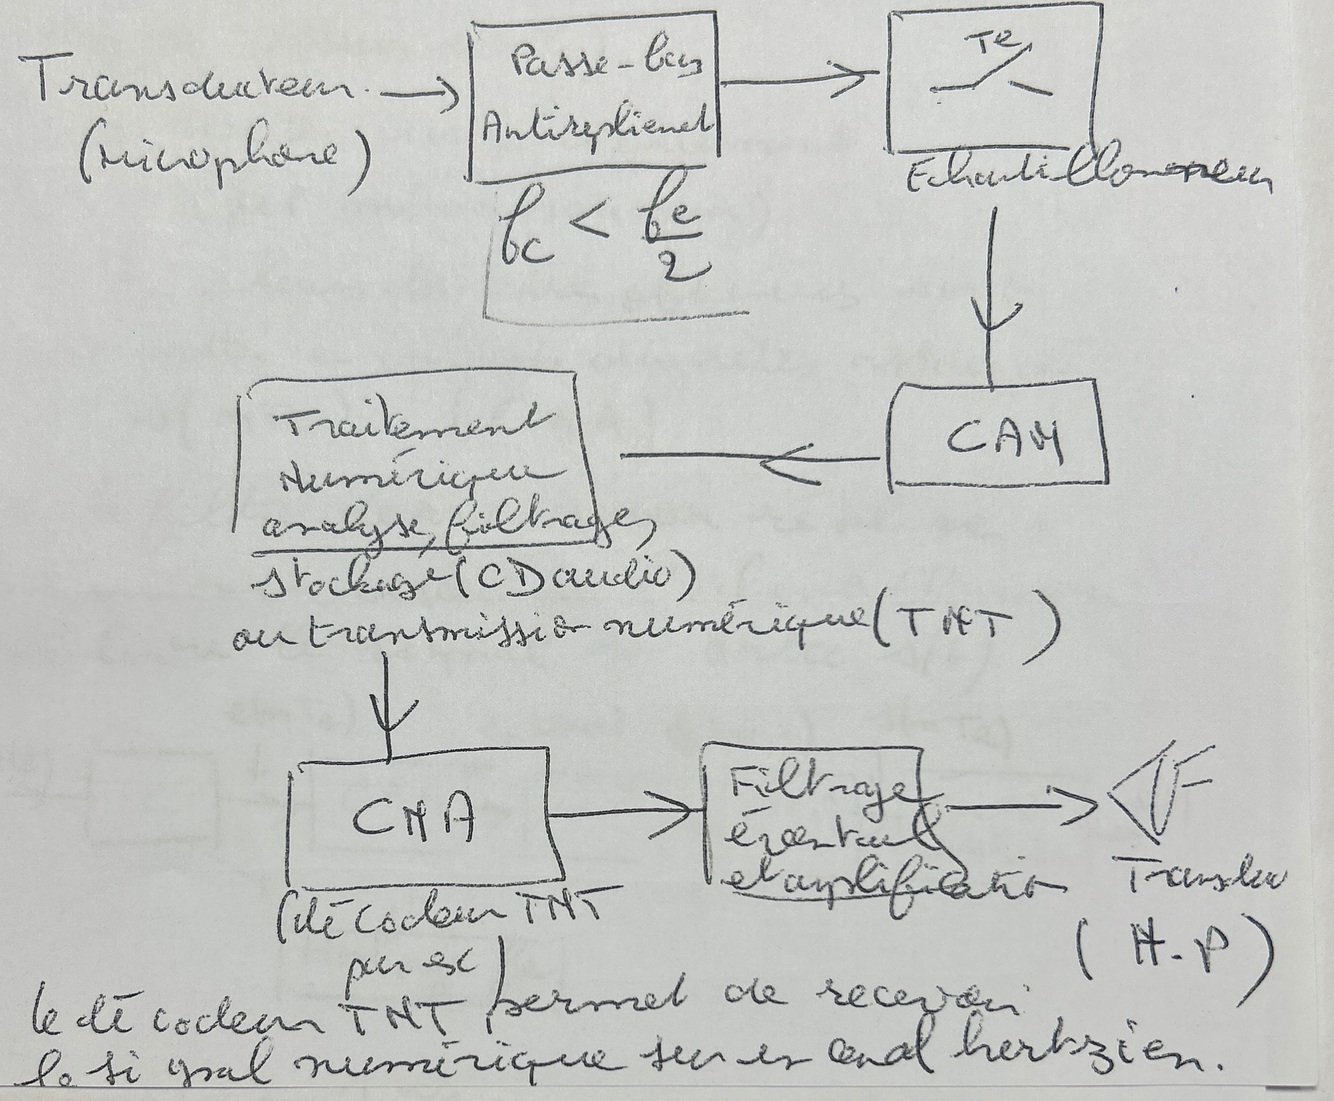 Transducteur
(Microphone)
Passe-bas
Antirepliement
fc < fe/2
Te
Echantillonneur
CAN
Traitement
Numérique
analyse, filtrage,
stockage (CD audio)
ou transmission numérique (TNT)
CNA
(décodeur TNT
par ex)
Filtrage
et amplification
Transdu
(H.P)
le décodeur TNT permet de recevoir
le signal numérique sur un canal hertzien.